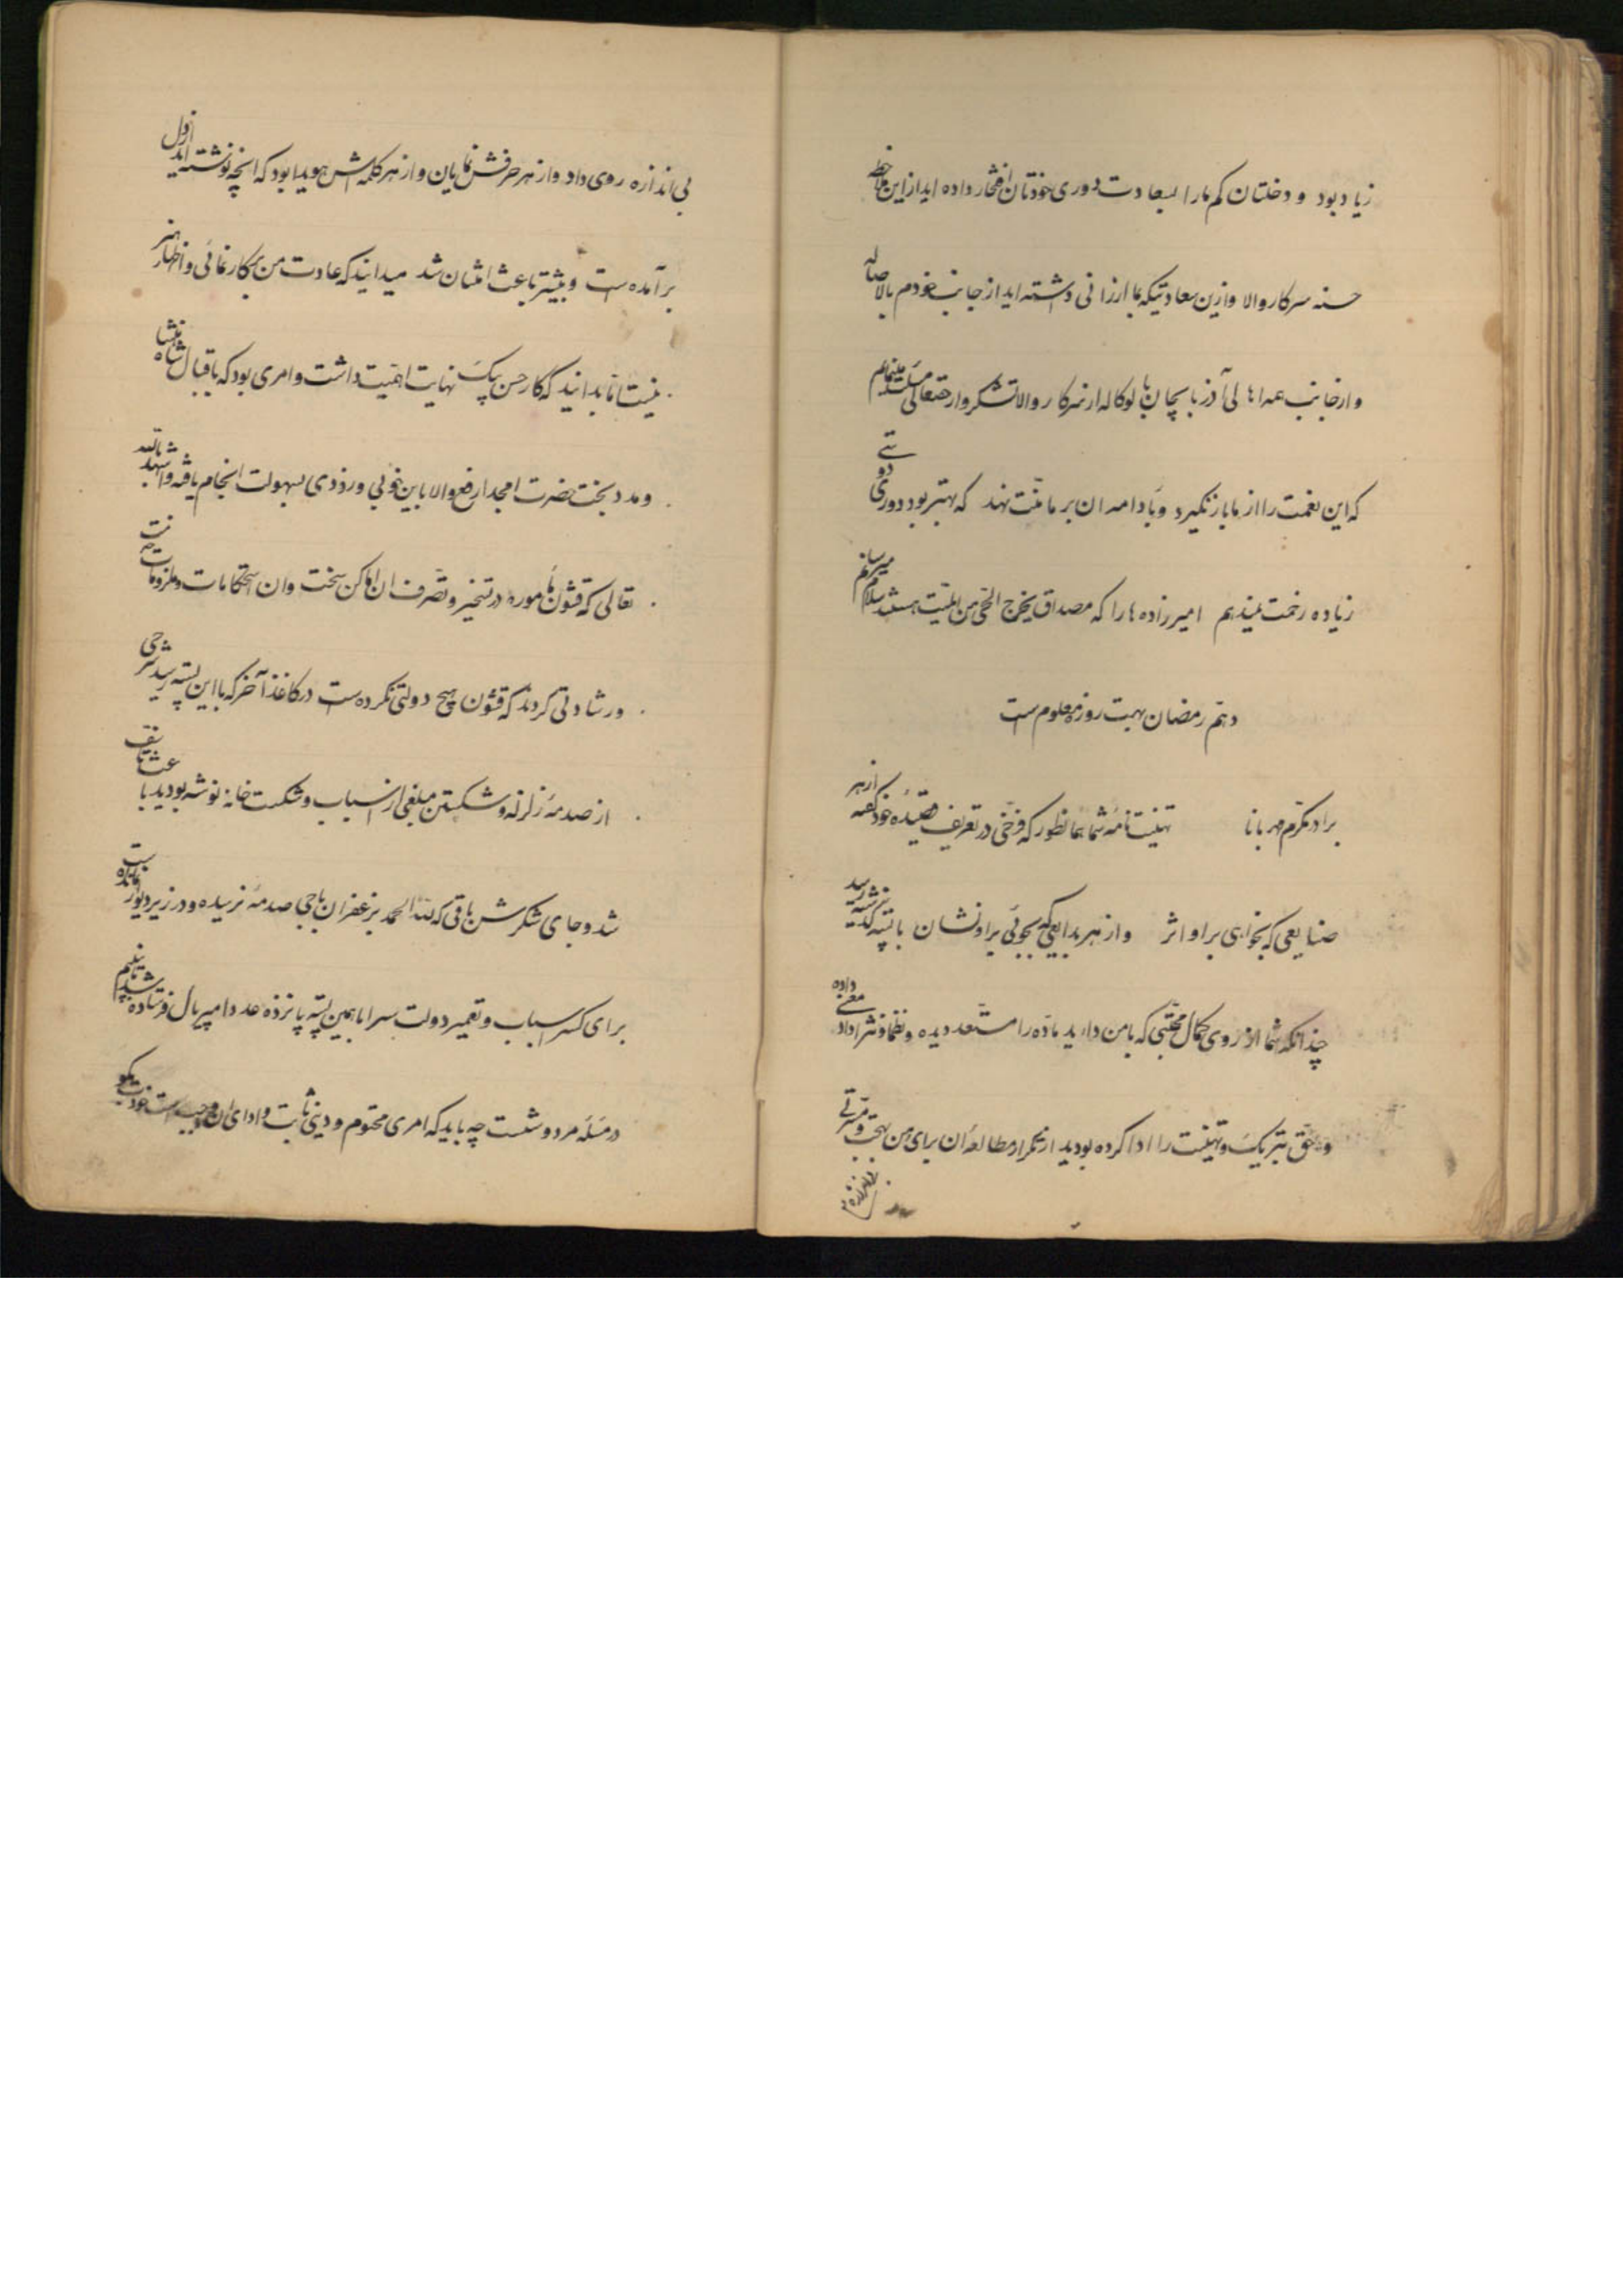 زیاد بود و دخلتان کم ما را بسعادت دوری خودتان افتخار داده اید از این ملاحظه
حسنه سرکار والا و ازین سعادتیکه بما ارزانی داشته اید از جانب خودم بالاصاله
و از جانب اهالی آذربایجان بالوکاله از سرکار والا تشکر و از حقتعالی مسئلت مینمایم
که این نعمت را از ما باز نگیرد و بادامه ان بر ما منت نهد که بهتر بود دوری دوستی
زیاده زحمت نمیدهم امیرزاده ها را که مصداق یخرج الحی من المیت هستند سلام میرسانم
دهم رمضان بهمت روزه معلوم است
برادر مکرم مهربانا تهنیت نامه شما همانطور که فرخی در تعریف قصیده خود گفته از هر
صنایعی که بخواهی بر او اثر و از هر بدایعی که بجوئی بر او نشان با پسته گذشته رسید
چندانکه شما از روی کمال محبتی که با من دارید ماده را مستعد دیده و نظما و نثرا داد معنی داده
و حق تبریک و تهنیت را ادا کرده بودید از تکرار مطالعه ان برای من بهجت و مسرتی
بی اندازه روی داد و از هر حرفش نمایان و از هر کلمه اش هویدا بود که انچه نوشته اید از دل
برآمده است و بیشتر باعث امتنان شد میدانید که عادت من بر کارنمائی و اظهار هنر
نیست اما بدانید که کار حسن بیک نهایت اهمیت داشت و امری بود که باقبال شاهنشاه
و مدد بخت حضرت امجد ارفع والا باین خوبی و زودی بسهولت انجام یافته و اشهد بالله
تعالی که قشون مامور در تسخیر و تصرف ان اماکن سخت و ان استحکامات
و رشادتی کردند که قشون هیچ دولتی نکرده است در کاغذ آخر که با این پسته رسید شرحی
از صدمه زلزله و شکستن مبلغی از اسباب و شکست خانه نوشته بودید باعث تاسف
شد و جای شکرش باقی که لله الحمد بزعفران باجی صدمه نرسیده و در زیر دیوار نمانده است
برای کسر اسباب و تعمیر دولت سرا با همین پسته پانزده عدد امپریال فرستاده شد
در مسئله مرد و شست چه باید که امری محتوم و دینی ثابت و ادای ان واجب است